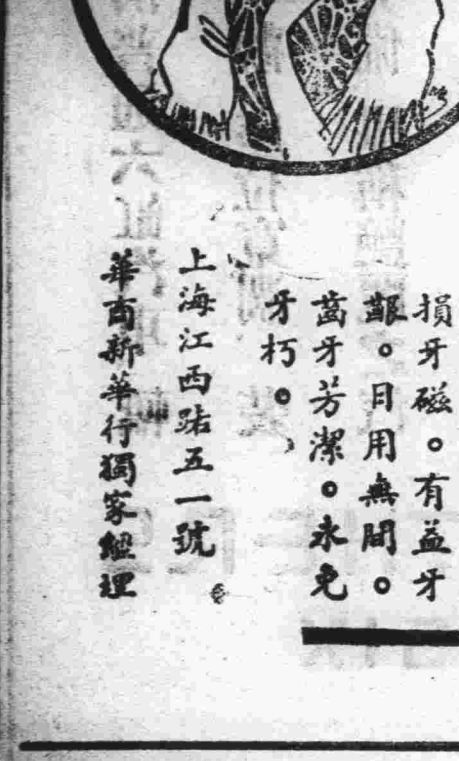 損牙磁。有益牙
齦。日用無間。
齒牙芳潔。永免
牙朽。
上海江西路五一號
華商新華行獨家經理